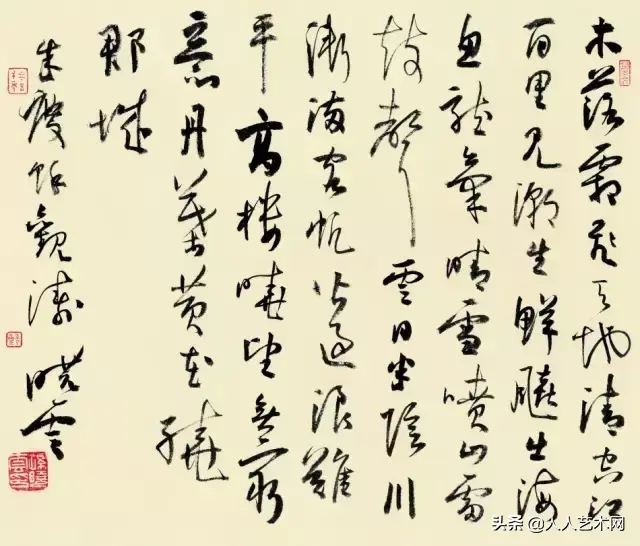 木落霜飛天地清空江
百里見潮生鮮飈出海
魚龍氣晴雪噴山雷
鼓聲雲日半陰川
漸滿客帆皆過浪難
平高樓曉望無窮
意丹葉黃花繞
郡城
朱慶餘觀濤 曉雲
头条 @人人艺术网